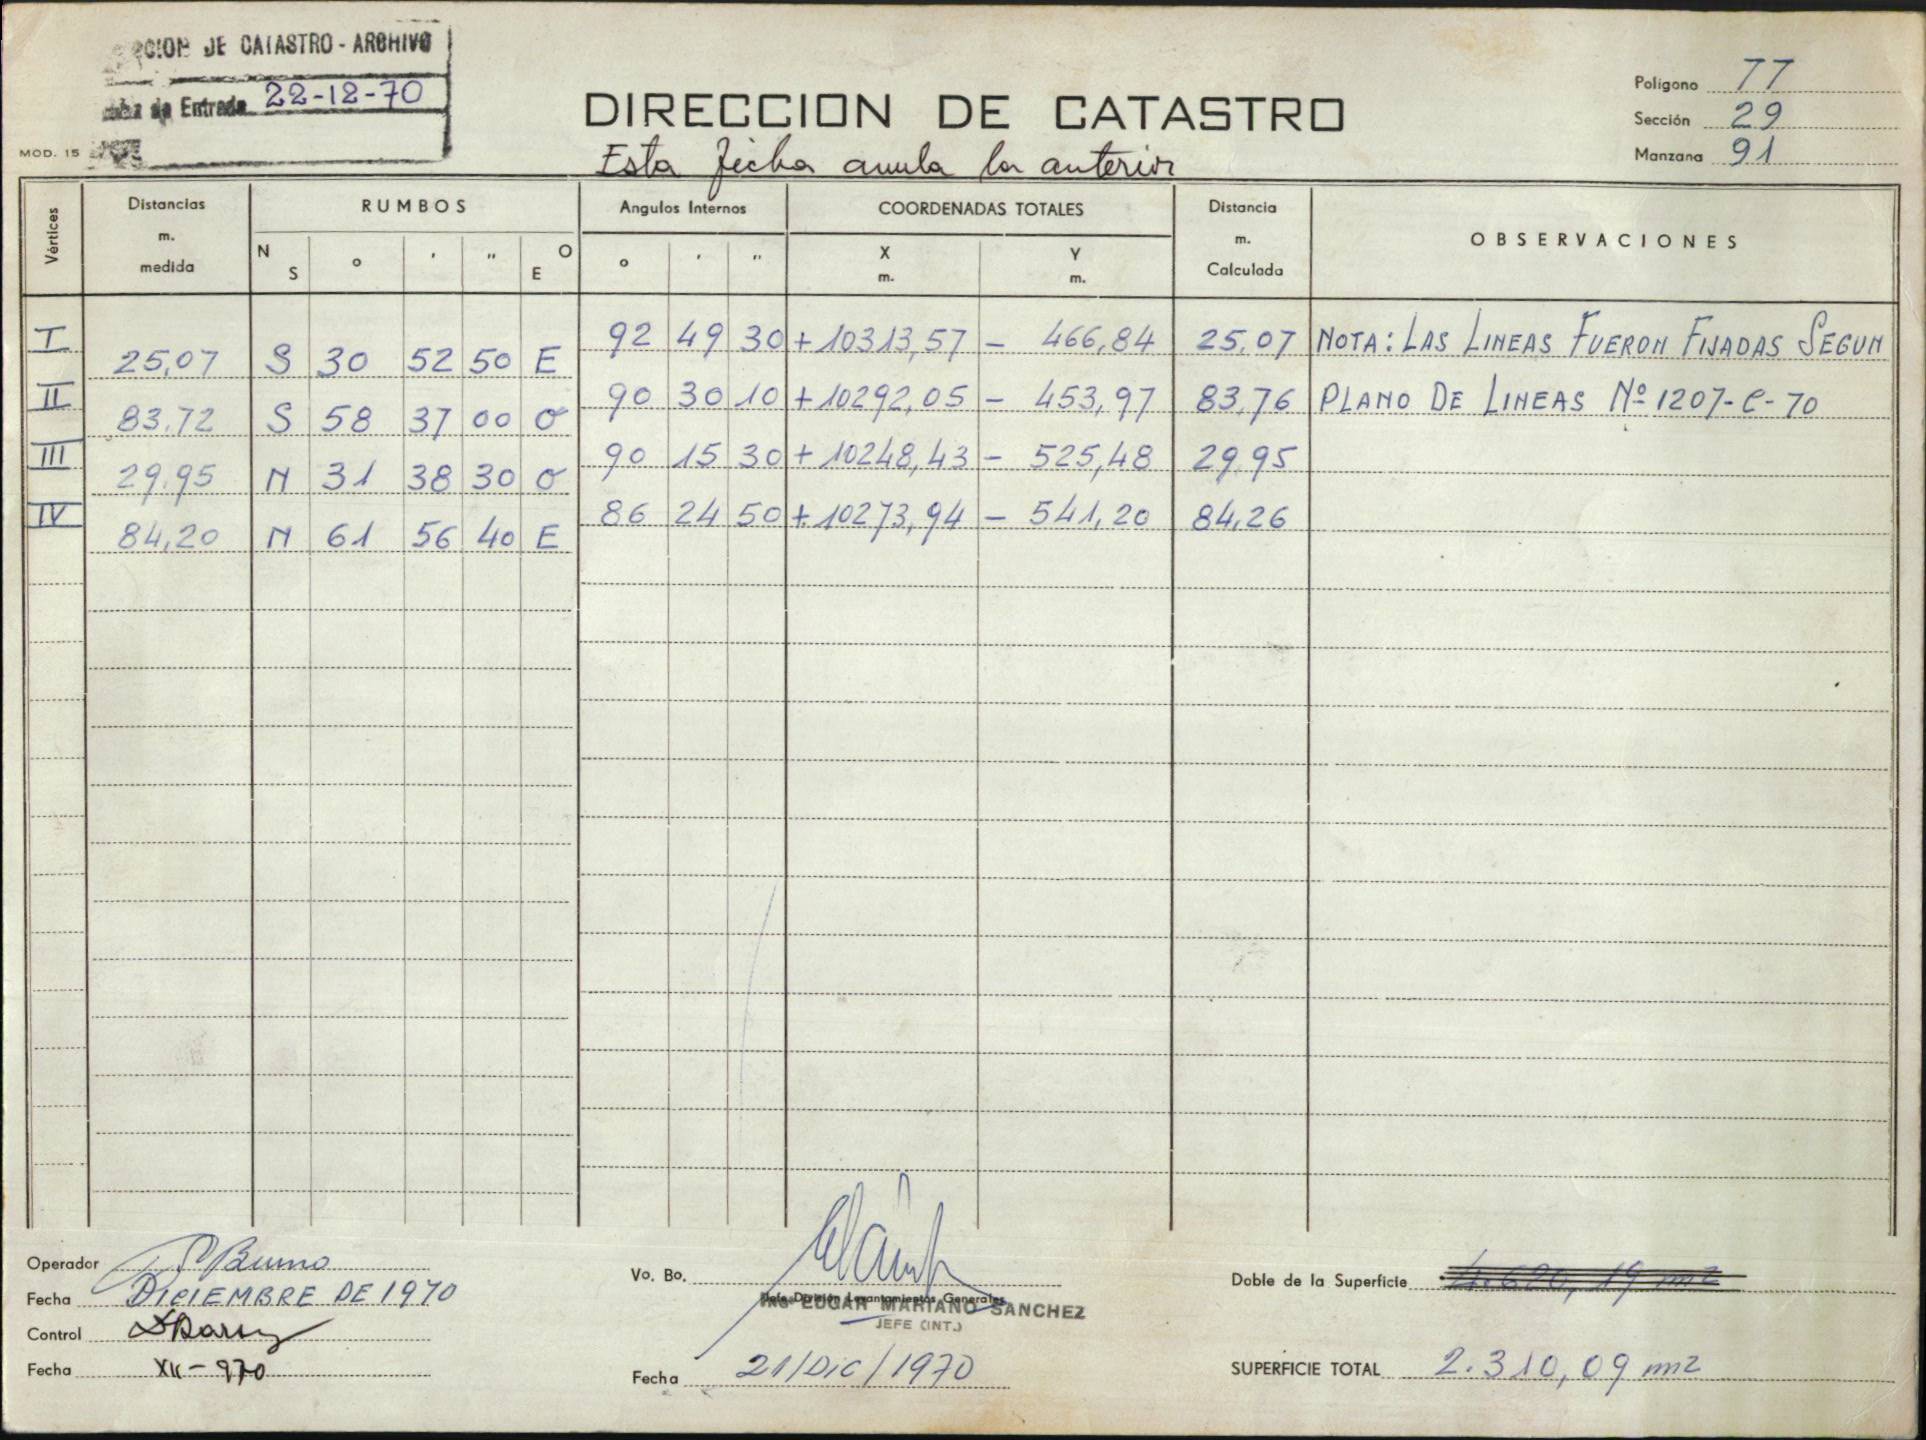 CION DE CATASTRO - ARCHIVO
de Entrada 22-12-70
MOD. 15
DIRECCION DE CATASTRO
Esta ficha anula la anterior
Poligono 77
Sección 29
Manzana 91
Vértices Distancias m. medida RUMBOS N S ° ' " O E Angulos Internos ° ' " COORDENADAS TOTALES X m. Y m. Distancia m. Calculada OBSERVACIONES
I 92 49 30 + 10313,57 - 466,84 25,07 NOTA: LAS LINEAS FUERON FIJADAS SEGUN
25,07 S 30 52 50 E
II 90 30 10 + 10292,05 - 453,97 83,76 PLANO DE LINEAS Nº 1207-C-70
83,72 S 58 37 00 O
III 90 15 30 + 10248,43 - 525,48 29,95
29,95 N 31 38 30 O
IV 86 24 50 + 10273,94 - 541,20 84,26
84,20 N 61 56 40 E
Operador Bruno
Fecha DICIEMBRE DE 1970
Control
Fecha XII-970
Vo. Bo.
Jefe División Levantamientos Generales
ING° EDGAR MARIANO SANCHEZ
JEFE (INT.)
Fecha 21/DIC/1970
Doble de la Superficie 4.620,19 m2
SUPERFICIE TOTAL 2.310,09 m2